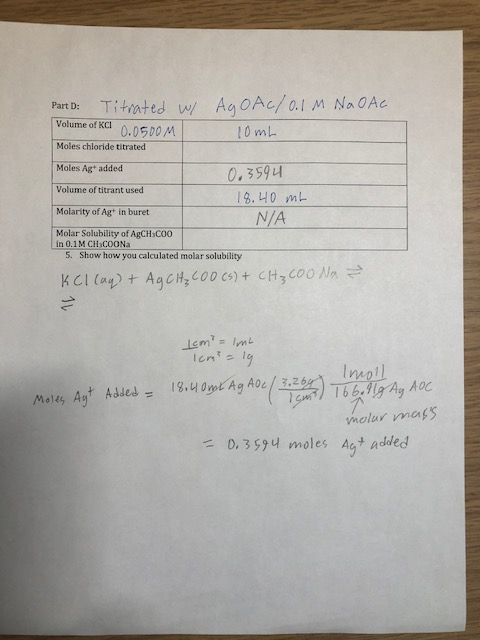 Part D: Titrated w/ AgOAc/0.1 M NaOAc
Volume of KCl 0.0500M 10mL
Moles chloride titrated
Moles Ag⁺ added 0.3594
Volume of titrant used 18.40 mL
Molarity of Ag⁺ in buret N/A
Molar Solubility of AgCH₃COO
in 0.1M CH₃COONa
5. Show how you calculated molar solubility
KCl(aq) + AgCH₃COO(s) + CH₃COONa ⇌
⇌
1cm³ = 1mL
1cm³ = 1g
Moles Ag⁺ Added = 18.40mL Ag AOC (3.26g / 1cm³) 1mol / 166.91g Ag AOC
↑
molar mass
= 0.3594 moles Ag⁺ added